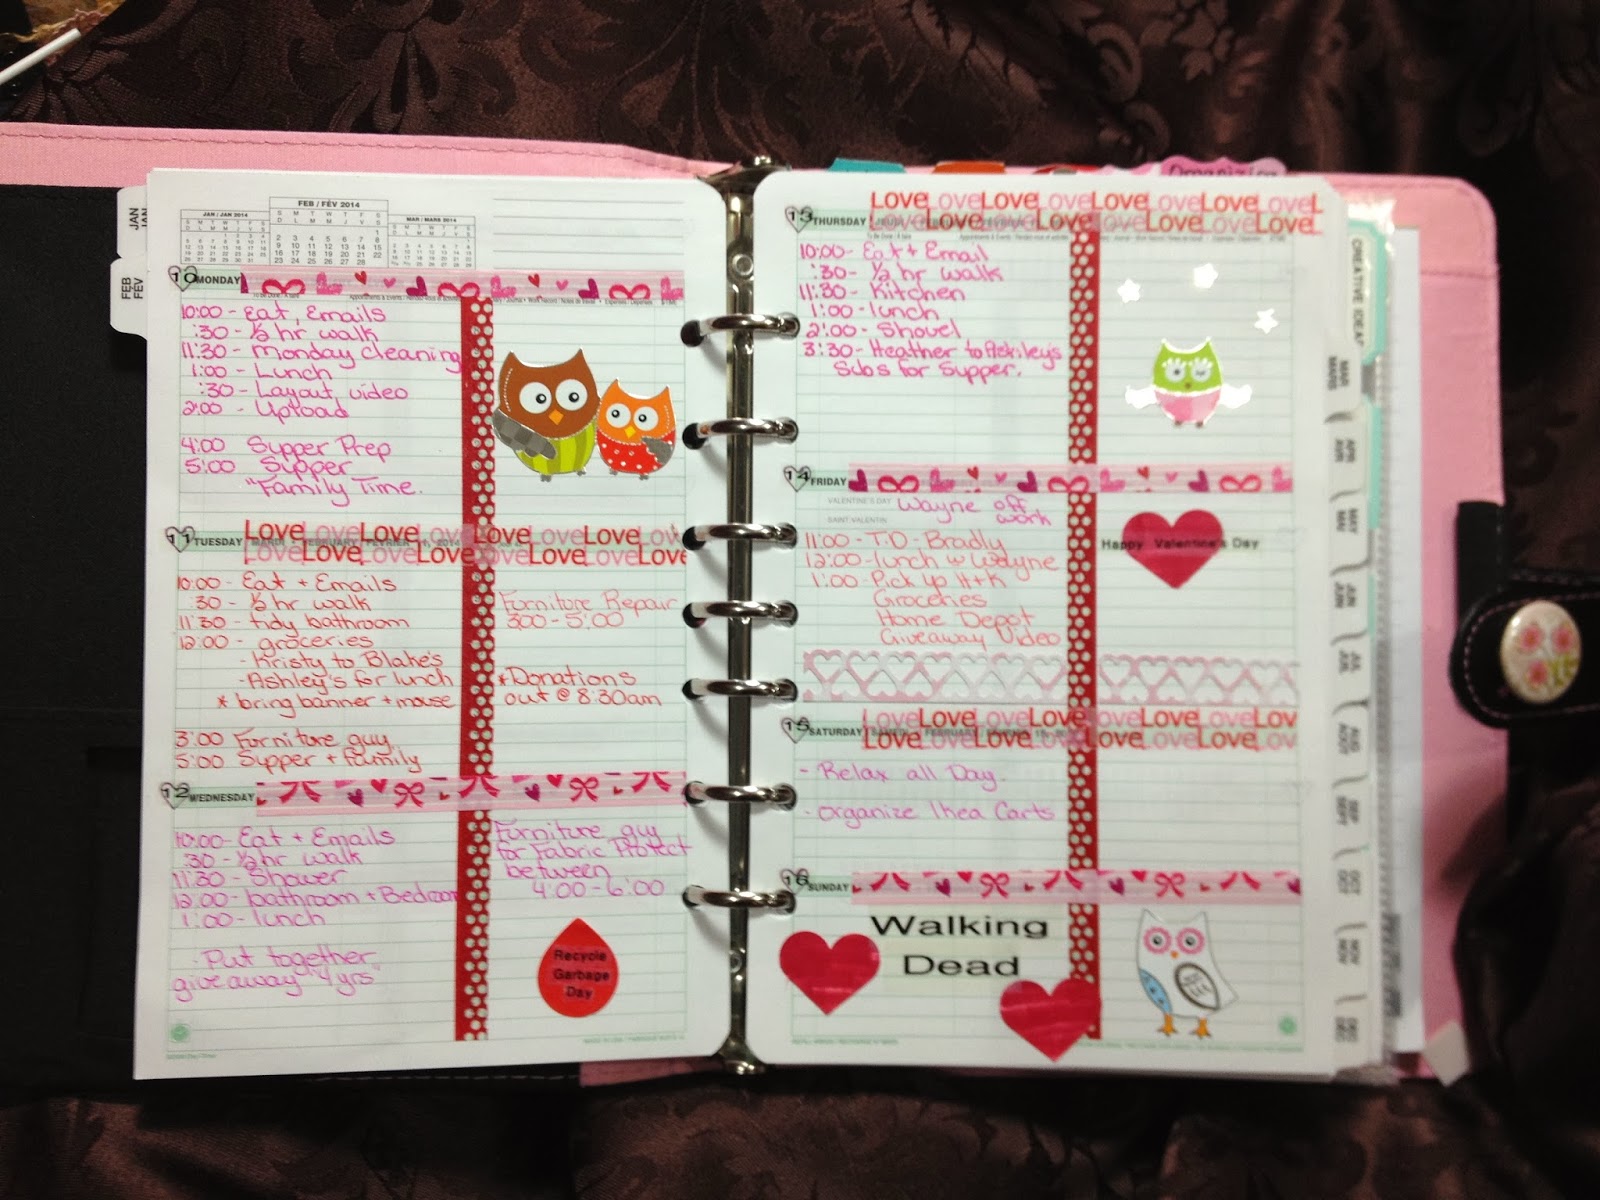 JAN
FEB
FÉV
JAN / JAN 2014
FEB / FÉV 2014
MAR / MARS 2014
10 MONDAY
10:00 - Eat, Emails
:30 - 1/2 hr walk
11:30 - Monday Cleaning
1:00 - Lunch
:30 - Layout video
2:00 - Upload
4:00 Supper Prep
5:00 Supper
"Family Time.
11 TUESDAY
Love Love Love Love Love Love Love Love
Love Love Love Love Love Love Love Love
10:00 - Eat + Emails
:30 - 1/2 hr walk
11:30 - tidy bathroom
12:00 - groceries
- Kristy to Blake's
- Ashley's for lunch
* bring banner + mouse
3:00 Furniture guy
5:00 Supper + family
Furniture Repair
3:00 - 5:00
*Donations
out @ 8:30am
12 WEDNESDAY
10:00 - Eat + Emails
:30 - 1/2 hr walk
11:30 - Shower
12:00 - bathroom + Bedroom
1:00 - lunch
- Put together
giveaway "4 yrs"
Furniture guy
for Fabric Protect
between
4:00 - 6:00
Recycle
Garbage
Day
Organizing
13 THURSDAY
Love Love Love Love Love Love Love Love
Love Love Love Love Love Love Love
10:00 - Eat + Email
:30 - 1/2 hr walk
11:30 - Kitchen
1:00 - lunch
2:00 - Shovel
3:30 - Heather to
Subs for Supper.
14 FRIDAY
VALENTINE'S DAY
SAINT VALENTIN
Wayne off
work
11:00 - T.O - Bradly
12:00 - lunch w Wayne
1:00 - Pick up H+K
Groceries
Home Depot
Giveaway Video
Happy Valentine's Day
15 SATURDAY
Love Love Love Love Love Love Love Love
Love Love Love Love Love Love Love Love
- Relax all Day.
- Organize Ikea Carts
16 SUNDAY
Walking
Dead
CREATIVE IDEA
MAR
MARS
APR
AVR
MAY
MAI
JUN
JUIN
JUL
JUL
AUG
AOÛT
SEP
SEPT
OCT
OCT
NOV
NOV
DEC
DÉC